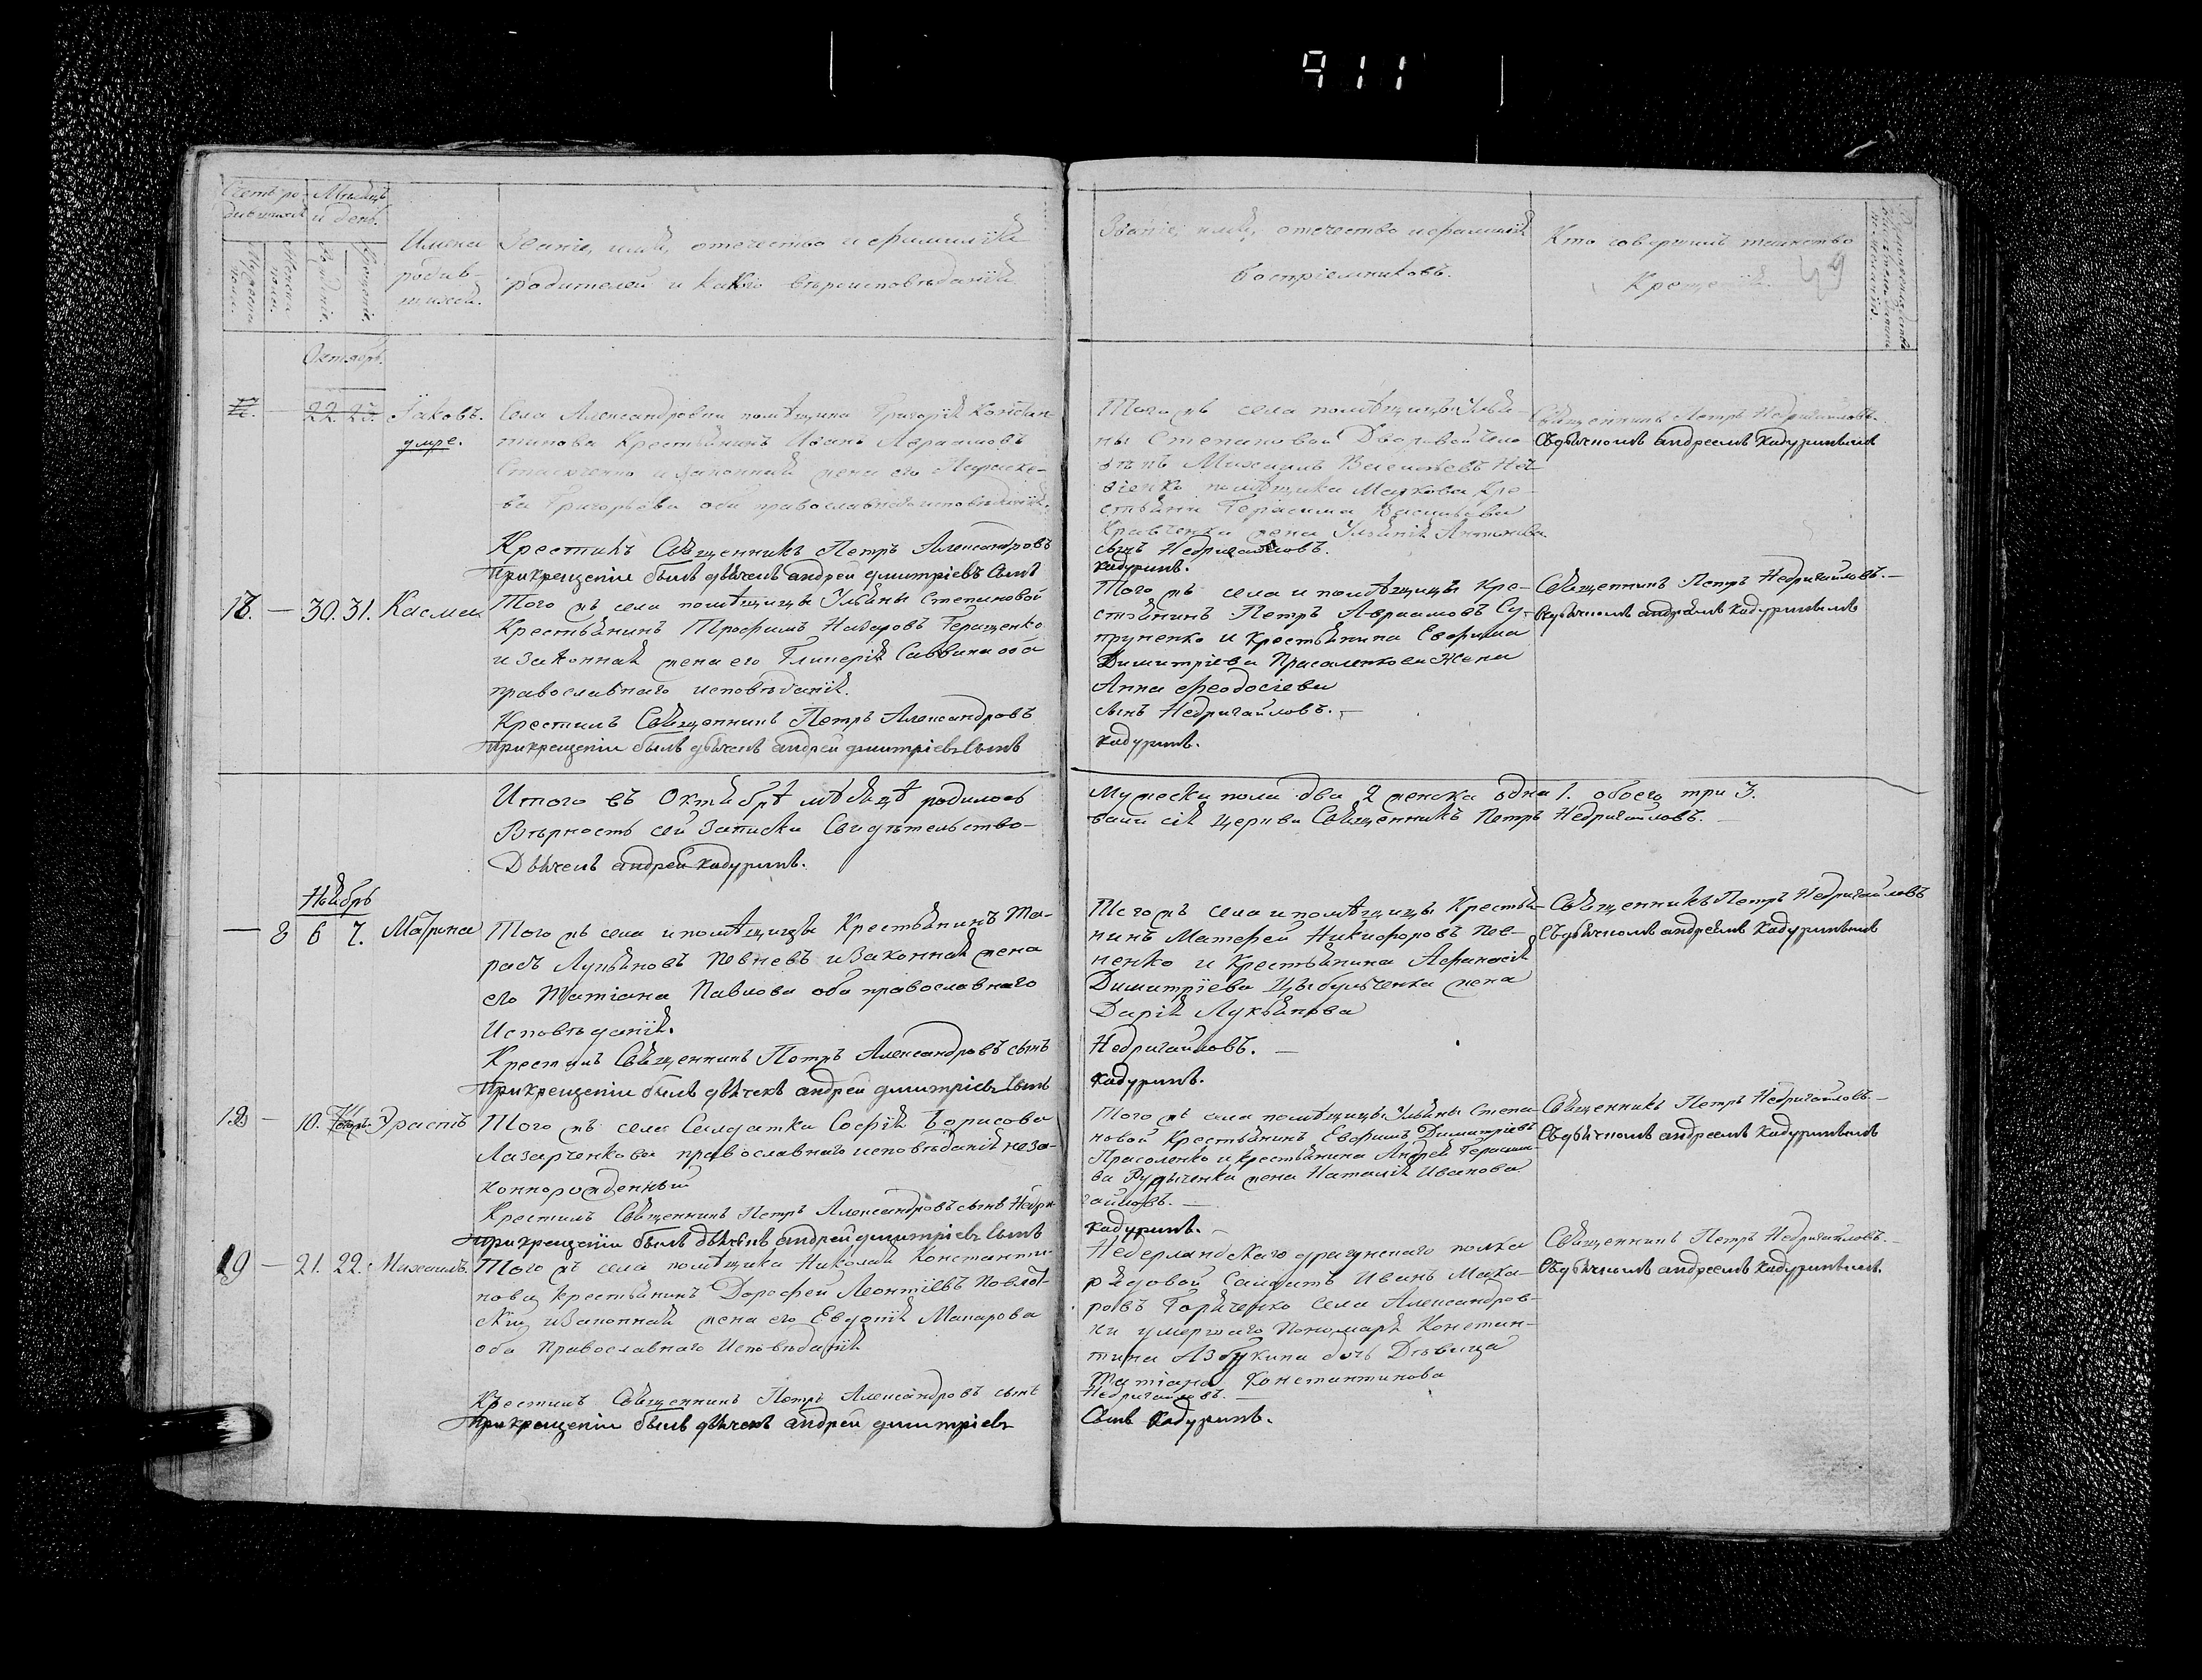 911
Счетъ ро-
дившихся
Мѣсяцъ
и день.
Мужеска
пола.
Женска
пола.
Рожденіе.
Крещеніе.
Имена
родив-
шихся.
Званіе, имя, отечество и фамилія
родителей и какого вѣроисповѣданія
Званіе имя, отечество и фамилія
воспріемниковъ.
Кто совершилъ таинство
Крещенія.
49
Октябрь.
22. 23. Іаковъ.
умре.
Села Александровки помѣщика Григорія Констан-
тинова Крестьянинъ Иванъ Авраамовъ
и законная жена его Параске-
ва Григорьева оба православнаго исповѣданія.
Крестилъ Священникъ Петръ Александровъ
При крещеніи былъ дьячекъ андрей димитріевъ сынъ
Того жъ села помѣщицы Улья-
ны Степановой Дворовой чело-
вѣкъ Михаилъ Васильевъ
помѣщика Маркова Кре-
стьяни Герасима Васильева
Кравченка жена Ульянія Антонова
сынъ Недригайловъ.
Кадуринъ.
Священникъ Петръ Недригайловъ.
Съ дьячкомъ андреемъ Кадуринымъ
17. — 30. 31. Касмеи
Того жъ села помѣщицы Ульяны Степановой
Крестьянинъ Трофимъ Назаровъ Геращенко
и законная жена его Гликерія Саввина оба
православнаго исповѣданія.
Крестилъ Священникъ Петръ Александровъ
При крещеніи былъ дьячекъ андрей димитріевъ сынъ
Того жъ села и помѣщицы Кре-
стьянинъ Петръ Авраамовъ Су-
пруненко и Крестьянина Ефрима
Димитріева Прасоленкова Жена
Анна Феодосіева
сынъ Недригайловъ. —
Кадуринъ.
Священникъ Петръ Недригайловъ. —
Съ дьячкомъ андреемъ Кадуринымъ
Итого въ Октябрѣ мѣсяцѣ родилось
Вѣрность сей записки Свидѣтельство-
Дьячекъ андрей Кадуринъ.
мужеска пола два 2 женска одна 1. обоего три 3.
вали сія церкви Священникъ Петръ Недригайловъ. —
Ноябрь
— 8 6 7. Марина
Того жъ села и помѣщицы Крестьянинъ Та-
расъ Лукьяновъ Певневъ и законная жена
его Татіана Павлова оба православнаго
Исповѣданія.
Крестилъ Священникъ Петръ Александровъ сынъ
При крещеніи былъ дьячекъ андрей димитріевъ сынъ
Того жъ села и помѣщицы Крестья-
нинъ Матфей Никифоровъ Пев-
ненко и Крестьянина Афанасія
Димитріева Цыбульченка жена
Дарія Лукьянова
Недригайловъ. —
Кадуринъ.
Священникъ Петръ Недригайловъ
Съ дьячкомъ андреемъ Кадуринымъ
18 — 10. Эрастъ
Того жъ села Салдатка Софія Борисова
Лазарченкова православнаго исповѣданія неза-
коннорожденный
Крестилъ Священникъ Петръ Александровъ сынъ Недри-
При крещеніи былъ дьячекъ андрей димитріевъ сынъ
Того жъ села помѣщицы Ульяны Степа-
новой Крестьянинъ Ефримъ Димитріевъ
Прасоленко и крестьянина Андрея Гераси-
ва Рудыченка жена Наталія Иванова
гайловъ. —
Кадуринъ. —
Священникъ Петръ Недригайловъ —
Съ дьячкомъ андреемъ Кадуринымъ
19 — 21. 22. Михаилъ.
Того жъ села помѣщика Николая Константи-
нова крестьянинъ Дорофей Леонтіевъ
и законная жена его Евдокія Макарова
оба Православнаго Исповѣданія
Крестилъ Священникъ Петръ Александровъ сынъ
При крещеніи былъ дьячекъ андрей димитріевъ
Недерландскаго драгунскаго полка
рядовой Салдатъ Иванъ Мака-
ровъ Горяченко села Александров-
ки умершаго Пономаря Констан-
тина Азбукина дочь Дѣвица
Татіана Константинова
Недригайловъ. —
Сынъ Кадуринъ.
Священникъ Петръ Недригайловъ. —
Съ дьячкомъ андреемъ Кадуринымъ.